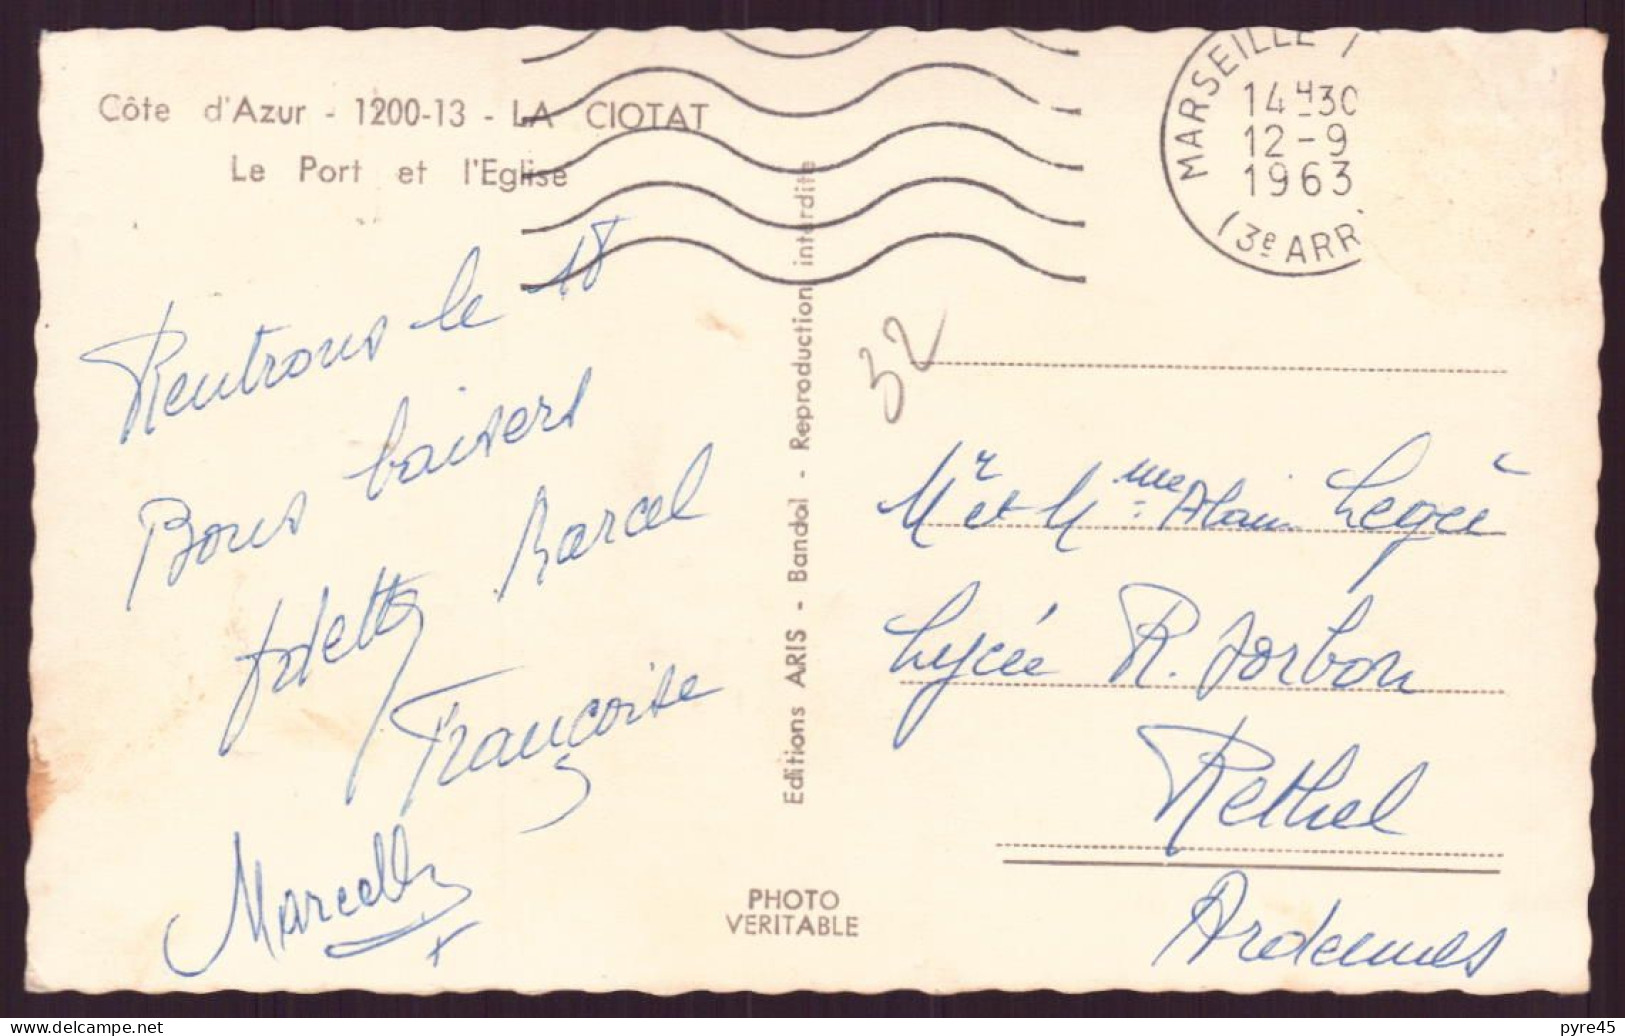 Côte d'Azur - 1200-13 - LA CIOTAT
Le Port et l'Eglise
MARSEILLE
14H30
12-9
1963
(3e ARR
Rentrons le 18
Bons baisers
Marcel
Françoise
Marcelle
Editions ARIS - Bandol - Reproduction interdite
PHOTO
VERITABLE
32
Mr et Mme Alain Legée
Lycée R. Sorbon
Rethel
Ardennes
pyre45